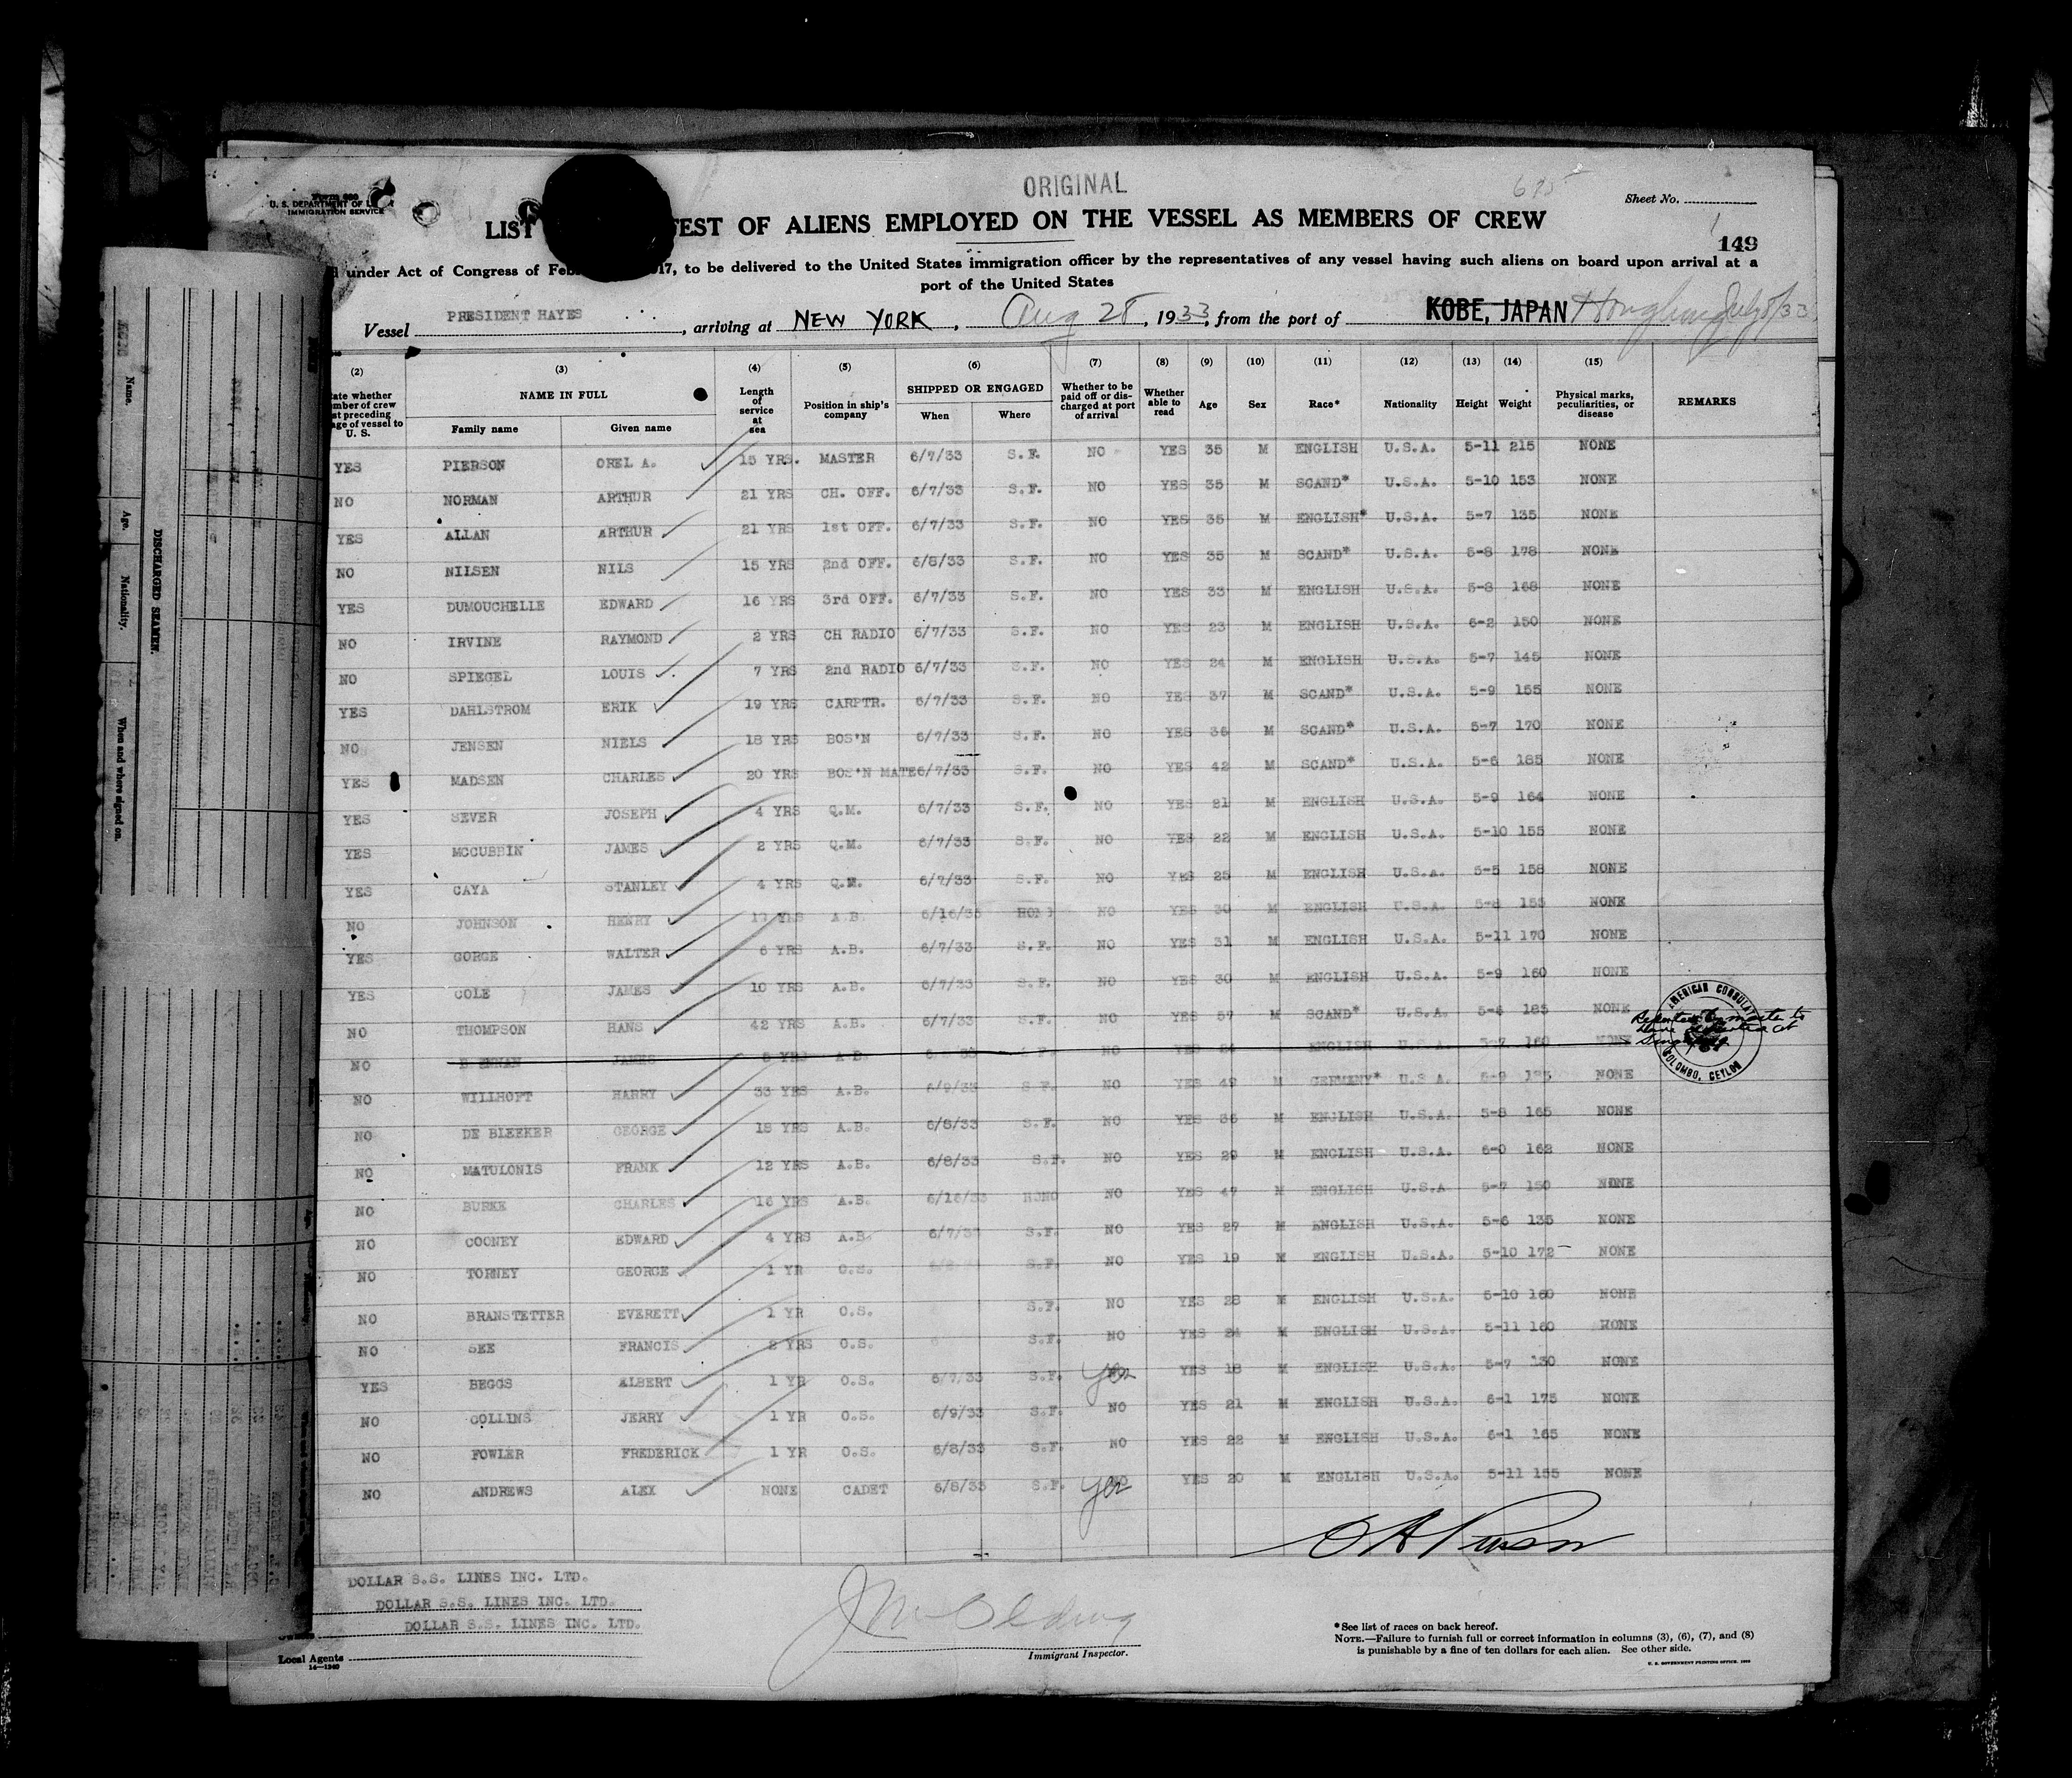 ORIGINAL
695
Sheet No.
1
U. S. DEPARTMENT OF
IMMIGRATION SERVICE
LIST EST OF ALIENS EMPLOYED ON THE VESSEL AS MEMBERS OF CREW
149
under Act of Congress of Feb 17, to be delivered to the United States immigration officer by the representatives of any vessel having such aliens on board upon arrival at a
port of the United States
Vessel PRESIDENT HAYES, arriving at NEW YORK, Aug 28, 1933, from the port of KOBE, JAPAN Hongkong July 8/33
(2) (3) (4) (5) (6) (7) (8) (9) (10) (11) (12) (13) (14) (15)
NAME IN FULL Length of service at sea Position in ship's company SHIPPED OR ENGAGED Whether to be paid off or discharged at port of arrival Whether able to read Age Sex Race* Nationality Height Weight Physical marks, peculiarities, or disease REMARKS
Family name Given name When Where
YES PIERSON OREL A. 15 YRS. MASTER 6/7/33 S.F. NO YES 35 M ENGLISH U.S.A. 5-11 215 NONE
NO NORMAN ARTHUR 21 YRS CH. OFF. 6/7/33 S.F. NO YES 35 M SCAND* U.S.A. 5-10 153 NONE
YES ALLAN ARTHUR 21 YRS 1st OFF. 6/7/33 S.F. NO YES 35 M ENGLISH* U.S.A. 5-7 135 NONE
NO NILSEN NILS 15 YRS 2nd OFF. 6/8/33 S.F. NO YES 35 M SCAND* U.S.A. 5-8 178 NONE
YES DUMOUCHELLE EDWARD 16 YRS 3rd OFF. 6/7/33 S.F. NO YES 33 M ENGLISH U.S.A. 5-8 168 NONE
NO IRVINE RAYMOND 2 YRS CH RADIO 6/7/33 S.F. NO YES 23 M ENGLISH U.S.A. 6-2 150 NONE
NO SPIEGEL LOUIS 7 YRS 2nd RADIO 6/7/33 S.F. NO YES 24 M ENGLISH U.S.A. 5-7 145 NONE
YES DAHLSTROM ERIK 19 YRS CARPTR. 6/7/33 S.F. NO YES 37 M SCAND* U.S.A. 5-9 155 NONE
NO JENSEN NIELS 18 YRS BOS'N 6/7/33 S.F. NO YES 36 M SCAND* U.S.A. 5-7 170 NONE
YES MADSEN CHARLES 20 YRS BOS'N MATE 6/7/33 S.F. NO YES 42 M SCAND* U.S.A. 5-6 185 NONE
YES SEVER JOSEPH 4 YRS Q.M. 6/7/33 S.F. NO YES 21 M ENGLISH U.S.A. 5-9 164 NONE
YES MCCUBBIN JAMES 2 YRS Q.M. 6/7/33 S.F. NO YES 22 M ENGLISH U.S.A. 5-10 155 NONE
YES CAYA STANLEY 4 YRS Q.M. 6/7/33 S.F. NO YES 25 M ENGLISH U.S.A. 5-5 158 NONE
NO JOHNSON HENRY YRS A.B. 6/16/33 HONO NO YES 30 M ENGLISH U.S.A. 5-8 155 NONE
YES GORGE WALTER 6 YRS A.B. 6/7/33 S.F. NO YES 31 M ENGLISH U.S.A. 5-11 170 NONE
YES COLE JAMES 10 YRS A.B. 6/7/33 S.F. NO YES 30 M ENGLISH U.S.A. 5-9 160 NONE
NO THOMPSON HANS 42 YRS A.B. 6/7/33 S.F. NO YES 57 M SCAND* U.S.A. 5-6 185 NONE
NO JAMES YRS A.B. NO YES 24 ENGLISH U.S.A. 5-7 160 NONE Reported by master to have deserted at Singapore
AMERICAN CONSULATE COLOMBO, CEYLON
NO WILLHOFT HARRY 33 YRS A.B. 6/9/33 S.F. NO YES 49 M GERMENY* U.S.A. NONE
NO DE BLEEKER GEORGE 18 YRS A.B. 6/8/33 S.F. NO YES 36 M ENGLISH U.S.A. 5-8 165 NONE
NO MATULONIS FRANK 12 YRS A.B. 6/8/33 S.F. NO YES 29 M ENGLISH U.S.A. 6-0 162 NONE
NO BURKE CHARLES 16 YRS A.B. 6/16/33 HONO NO YES 47 M ENGLISH U.S.A 5-7 150 NONE
NO COONEY EDWARD 4 YRS A.B. 6/7/33 S.F. NO YES 27 M ENGLISH U.S.A. 5-6 135 NONE
NO TORNEY GEORGE 1 YR O.S. S.F. NO YES 19 M ENGLISH U.S.A. 5-10 172 NONE
NO BRANSTETTER EVERETT 1 YR O.S. S.F. NO YES 28 M ENGLISH U.S.A. 5-10 160 NONE
NO SEE FRANCIS 2 YRS O.S. S.F. NO YES 24 M ENGLISH U.S.A. 5-11 160 NONE
YES BEGGS ALBERT 1 YR O.S. 6/7/33 S.F. Yes YES 18 M ENGLISH U.S.A. 5-7 130 NONE
NO COLLINS JERRY 1 YR O.S. 6/9/33 S.F. NO YES 21 M ENGLISH U.S.A. 6-1 175 NONE
NO FOWLER FREDERICK 1 YR O.S. 6/8/33 S.F. NO YES 22 M ENGLISH U.S.A. 6-1 165 NONE
NO ANDREWS ALEX NONE CADET 6/8/33 S.F. Yes YES 20 M ENGLISH U.S.A. 5-11 155 NONE
DOLLAR S.S. LINES INC. LTD.
DOLLAR S.S. LINES INC. LTD.
DOLLAR S.S. LINES INC. LTD.
Local Agents
14—1240
Immigrant Inspector.
*See list of races on back hereof.
NOTE.—Failure to furnish full or correct information in columns (3), (6), (7), and (8)
is punishable by a fine of ten dollars for each alien. See other side.
U. S. GOVERNMENT PRINTING OFFICE
Name.
Age.
Nationality.
When and where signed on.
DISCHARGED SEAMEN.